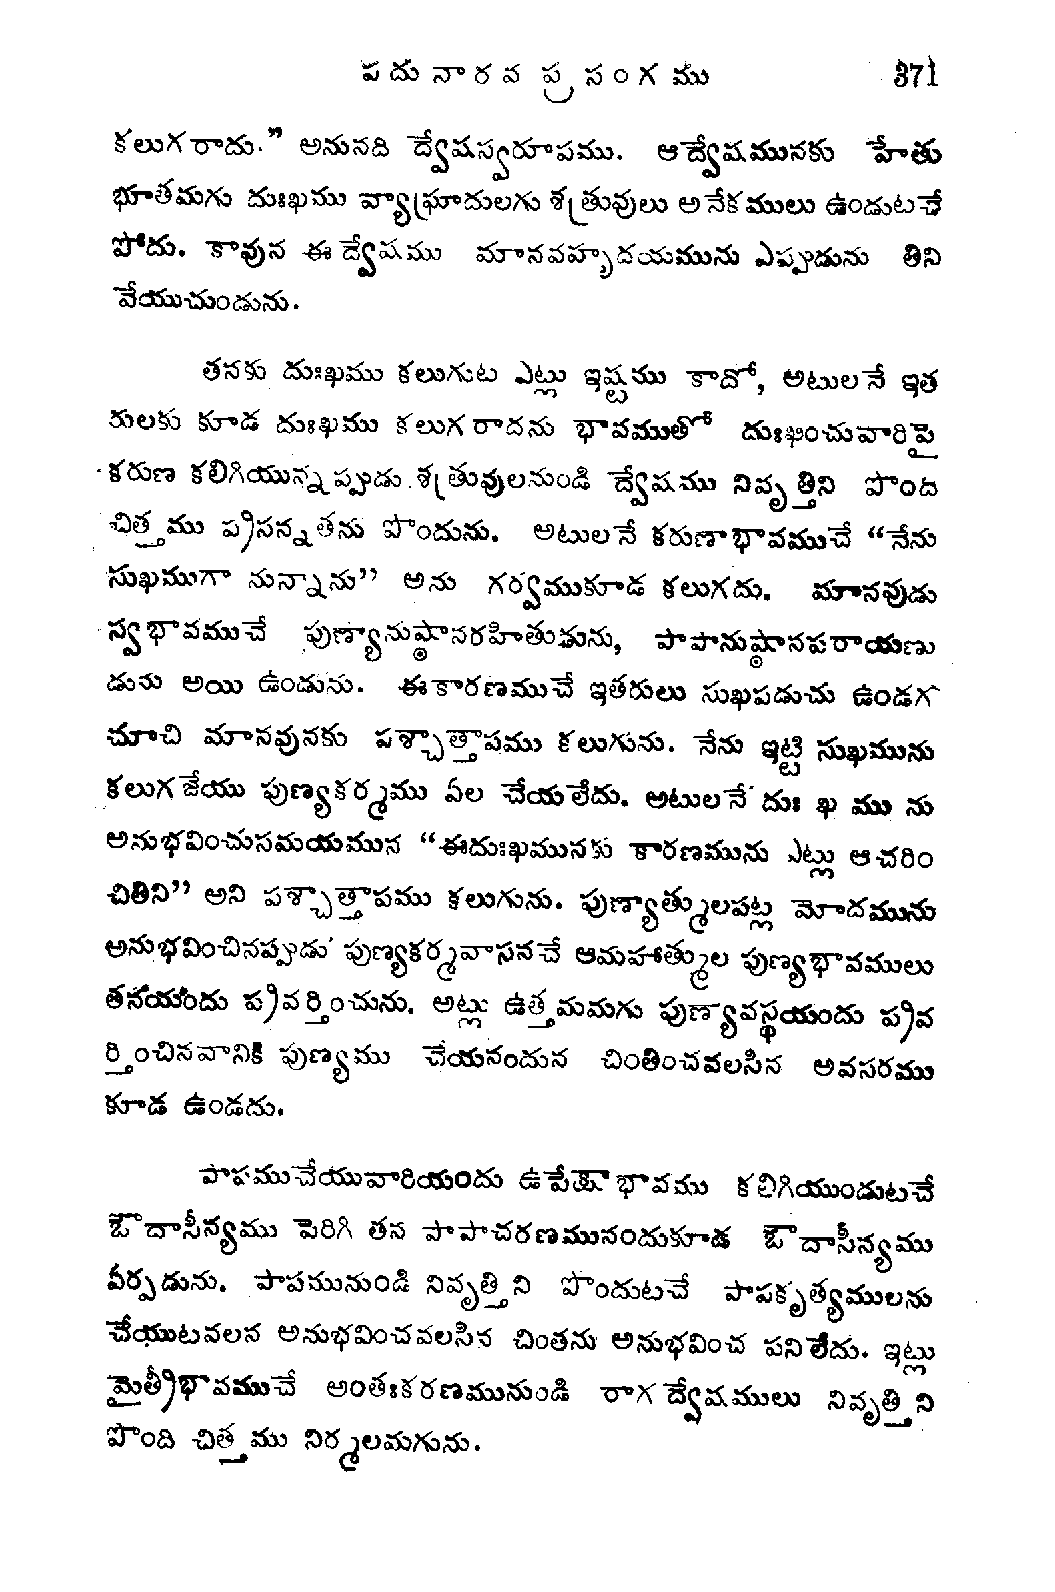 పదునారవ ప్రసంగము 371
కలుగరాదు." అనునది ద్వేషస్వరూపము. ఆద్వేషమునకు హేతు
భూతమగు దుఃఖము వ్యాఘ్రాదులగు శత్రువులు అనేకములు ఉండుటచే
పోదు. కావున ఈ ద్వేషము మానవహృదయమును ఎప్పుడును తిని
వేయుచుండును.
తనకు దుఃఖము కలుగుట ఎట్లు ఇష్టము కాదో, అటులనే ఇత
రులకు కూడ దుఃఖము కలుగరాదను భావముతో దుఃఖించువారిపై
కరుణ కలిగియున్నప్పుడు శత్రువులనుండి ద్వేషము నివృత్తిని పొంది
చిత్తము ప్రసన్నతను పొందును. అటులనే కరుణాభావముచే "నేను
సుఖముగా నున్నాను" అను గర్వముకూడ కలుగదు. మానవుడు
స్వభావముచే పుణ్యానుష్ఠానరహితుడును, పాపానుష్ఠానపరాయణు
డును అయి ఉండును. ఈకారణముచే ఇతరులు సుఖపడుచు ఉండగ
చూచి మానవునకు పశ్చాత్తాపము కలుగును. నేను ఇట్టి సుఖమును
కలుగజేయు పుణ్యకర్మము ఏల చేయలేదు. అటులనే దుః ఖ ము ను
అనుభవించుసమయమున "ఈదుఃఖమునకు కారణమును ఎట్లు ఆచరిం
చితిని" అని పశ్చాత్తాపము కలుగును. పుణ్యాత్ములపట్ల మోదమును
అనుభవించినప్పుడు పుణ్యకర్మవాసనచే ఆమహాత్ముల పుణ్యభావములు
తనయందు ప్రవర్తించును. అట్లు ఉత్తమమగు పుణ్యావస్థయందు ప్రవ
ర్తించినవానికి పుణ్యము చేయనందున చింతించవలసిన అవసరము
కూడ ఉండదు.
పాపముచేయువారియందు ఉపేక్షాభావము కలిగియుండుటచే
ఔదాసీన్యము పెరిగి తన పాపాచరణమునందుకూడ ఔదాసీన్యము
ఏర్పడును. పాపమునుండి నివృత్తిని పొందుటచే పాపకృత్యములను
చేయుటవలన అనుభవించవలసిన చింతను అనుభవించ పనిలేదు. ఇట్లు
మైత్రీభావముచే అంతఃకరణమునుండి రాగద్వేషములు నివృత్తిని
పొంది చిత్తము నిర్మలమగును.